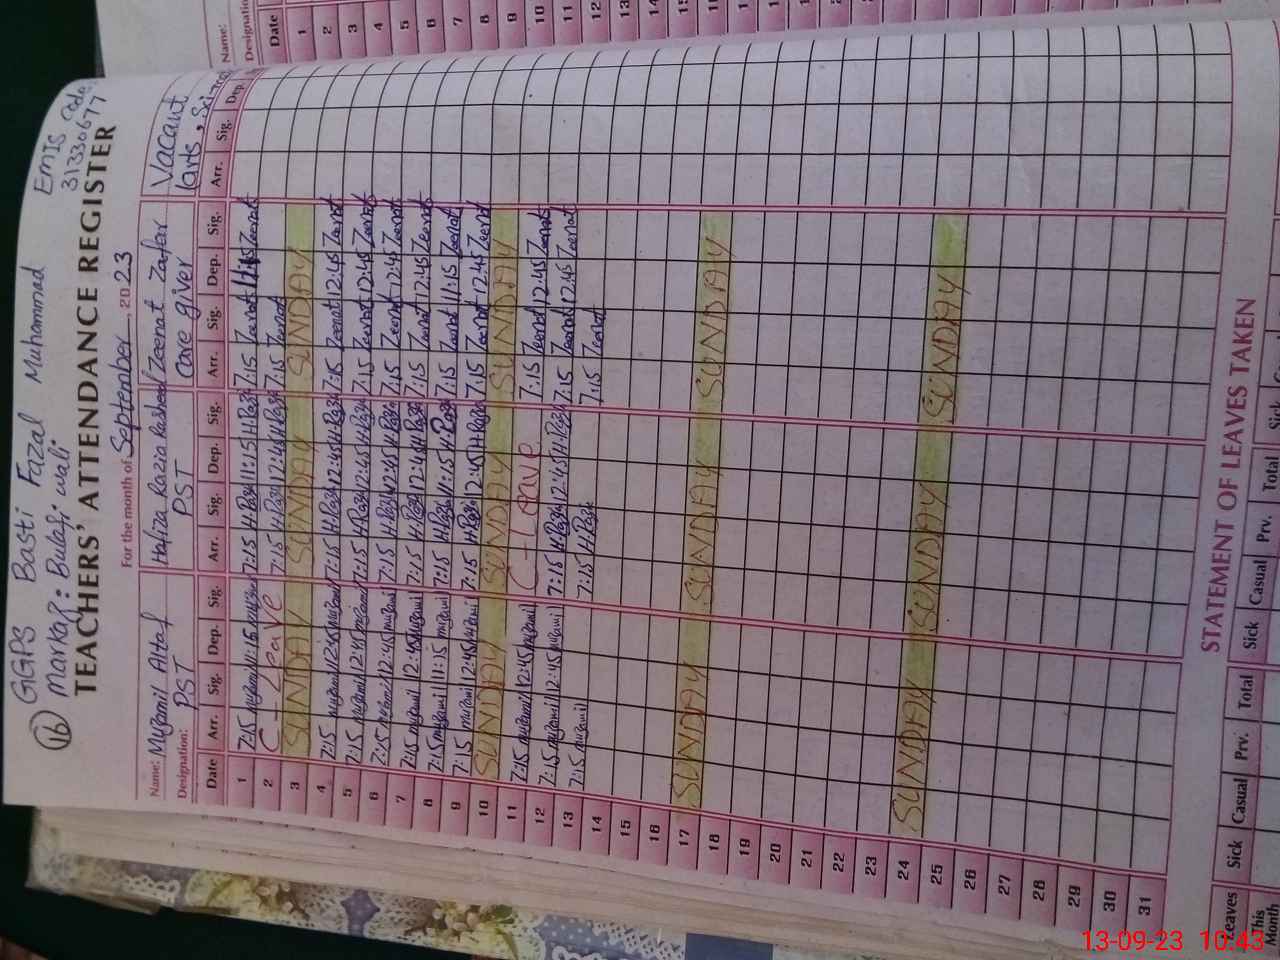 16 GGPS Basti Fazal Muhammad EMIS Code
Markaz: Bulaqi wali 31330677
TEACHERS' ATTENDANCE REGISTER
For the month of September, 2023
Name: Muzamil Altaf Hafiza Razia Rasheed Zeenat Zafar Vacant
Designation: PST PST Care giver (arts,
Date Arr. Sig. Dep. Sig. Arr. Sig. Dep. Sig. Arr. Sig. Dep. Sig. Arr. Sig. Dep.
1 7:15 muzamil 11:15 muzamil 7:15 H.Razia 11:15 H.Razia 7:15 Zeenat 11:15 Zeenat
2 C-Leave 7:15 H.Razia 12:45 H.Razia 7:15 Zeenat
3 SUNDAY SUNDAY SUNDAY
4 7:15 muzamil 12:45 muzamil 7:15 H.Razia 12:45 H.Razia 7:15 Zeenat 12:45 Zeenat
5 7:15 muzamil 12:45 muzamil 7:15 H.Razia 12:45 H.Razia 7:15 Zeenat 12:45 Zeenat
6 7:15 muzamil 12:45 muzamil 7:15 H.Razia 12:45 H.Razia 7:15 Zeenat 12:45 Zeenat
7 7:15 muzamil 12:45 muzamil 7:15 H.Razia 12:45 H.Razia 7:15 Zeenat 12:45 Zeenat
8 7:15 muzamil 11:15 muzamil 7:15 H.Razia 11:15 H.Razia 7:15 Zeenat 11:15 Zeenat
9 7:15 muzamil 12:45 muzamil 7:15 H.Razia 12:45 H.Razia 7:15 Zeenat 12:45 Zeenat
10 SUNDAY SUNDAY SUNDAY
11 7:15 muzamil 12:45 muzamil C-Leave 7:15 Zeenat 12:45 Zeenat
12 7:15 muzamil 12:45 muzamil 7:15 H.Razia 12:45 H.Razia 7:15 Zeenat 12:45 Zeenat
13 7:15 muzamil 7:15 H.Razia 7:15 Zeenat
14
15
16
17 SUNDAY SUNDAY SUNDAY
18
19
20
21
22
23
24 SUNDAY SUNDAY SUNDAY
25
26
27
28
29
30
31
STATEMENT OF LEAVES TAKEN
Leaves Sick Casual Prv. Total Sick Casual Prv. Total Sick
This
Month
Name:
Designation
Date
1
2
3
4
5
6
7
8
9
10
11
12
13
14
13-09-23 10:43